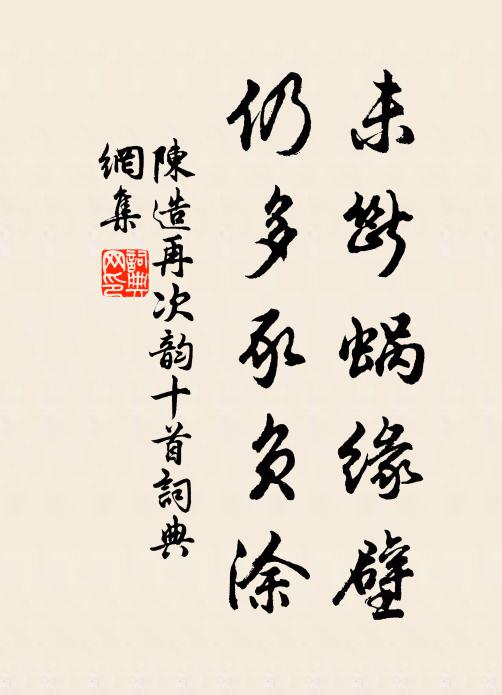 未断蝸緣壁
仍多豕負涂
陳造再次韵十首詞典
網集
詞典
网印